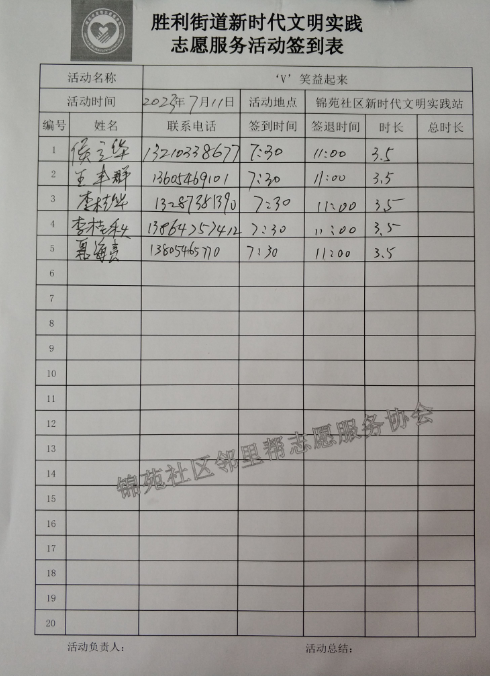 胜利街道新时代文明实践
志愿服务活动签到表
活动名称 ‘V’笑益起来
活动时间 2023年7月11日 活动地点 锦苑社区新时代文明实践站
编号 姓名 联系电话 签到时间 签退时间 时长 总时长
1 侯立华 13210338677 7:30 11:00 3.5
2 王丰群 13605469101 7:30 11:00 3.5
3 李桂华 13287381390 7:30 11:00 3.5
4 李桂秋 13864757412 7:30 11:00 3.5
5 13805465770 7:30 11:00 3.5
6
7
8
9
10
11
12
13
14
15
16
17
18
19
20
锦苑社区邻里帮志愿服务协会
活动负责人: 活动总结: